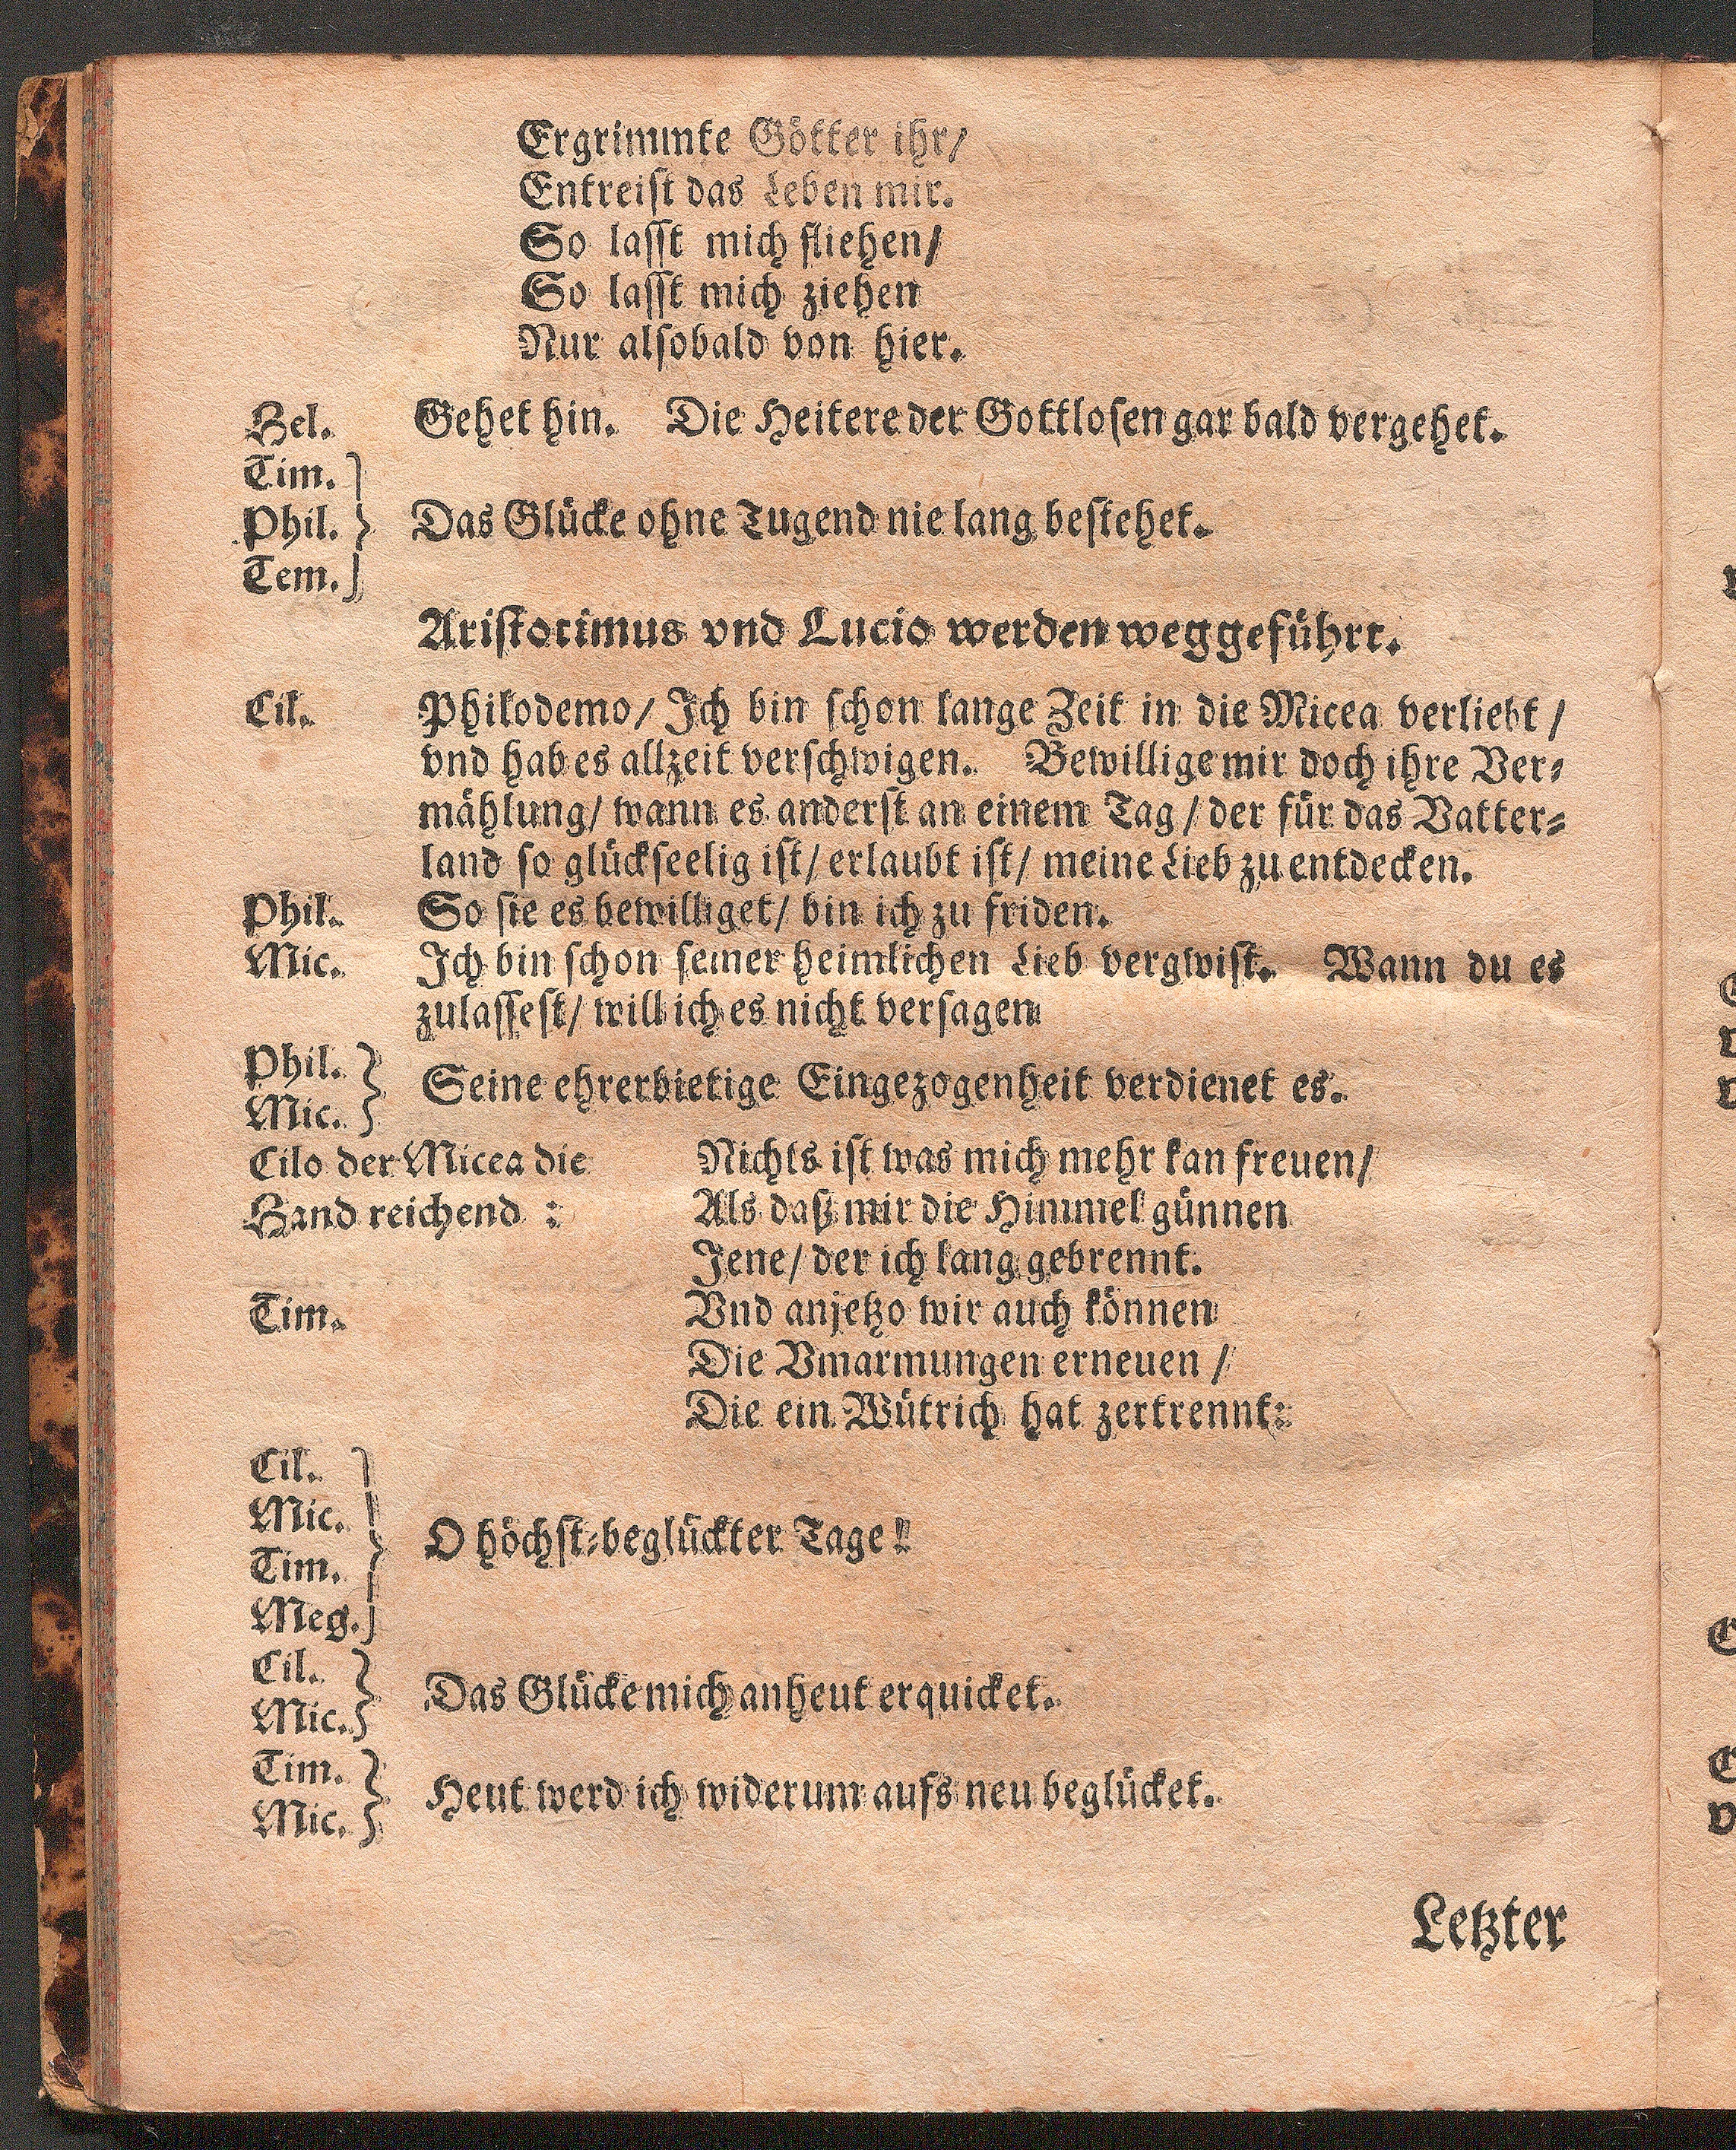 Ergrimmte Götter ihr/
Entreist das Leben mir.
So lasst mich fliehen/
So lasst mich ziehen
Nur alsobald von hier.
Hel. Gehet hin. Die Heitere der Gottlosen gar bald vergehet.
Tim.
Phil. Das Glücke ohne Tugend nie lang bestehet.
Tem.
Aristotimus vnd Lucio werden weggeführt.
Cil. Philodemo/ Ich bin schon lange Zeit in die Micea verliebt/
vnd hab es allzeit verschwigen. Bewillige mir doch ihre Ver-
mählung/ wann es anderst an einem Tag/ der für das Vatter-
land so glückseelig ist/ erlaubt ist/ meine Lieb zu entdecken.
Phil. So sie es bewilliget/ bin ich zu friden.
Mic. Ich bin schon seiner heimlichen Lieb vergwist. Wann du es
zulassest/ will ich es nicht versagen
Phil.
Mic. Seine ehrerbietige Eingezogenheit verdienet es.
Cilo der Micea die Nichts ist was mich mehr kan freuen/
Hand reichend : Als daß mir die Himmel günnen
Jene/ der ich lang gebrennt.
Tim. Vnd anjetzo wir auch können
Die Vmarmungen erneuen/
Die ein Wütrich hat zertrennt:
Cil.
Mic.
O höchst-beglückter Tage!
Tim.
Meg.
Cil.
Das Glücke mich anheut erquicket.
Mic.
Tim.
Heut werd ich widerum aufs neu beglücket.
Mic.
Letzter